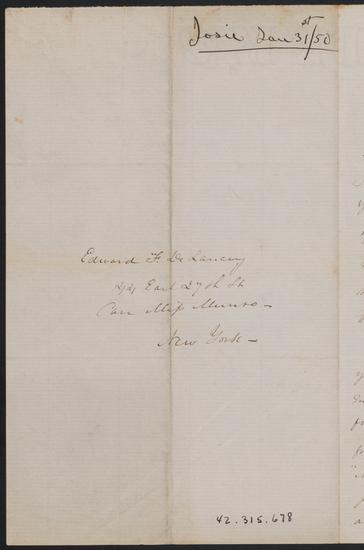 Josie Jan 31st/50
Edward F. De Lancey
East 27th St
Care Miss Munro –
New York –
42.315.678